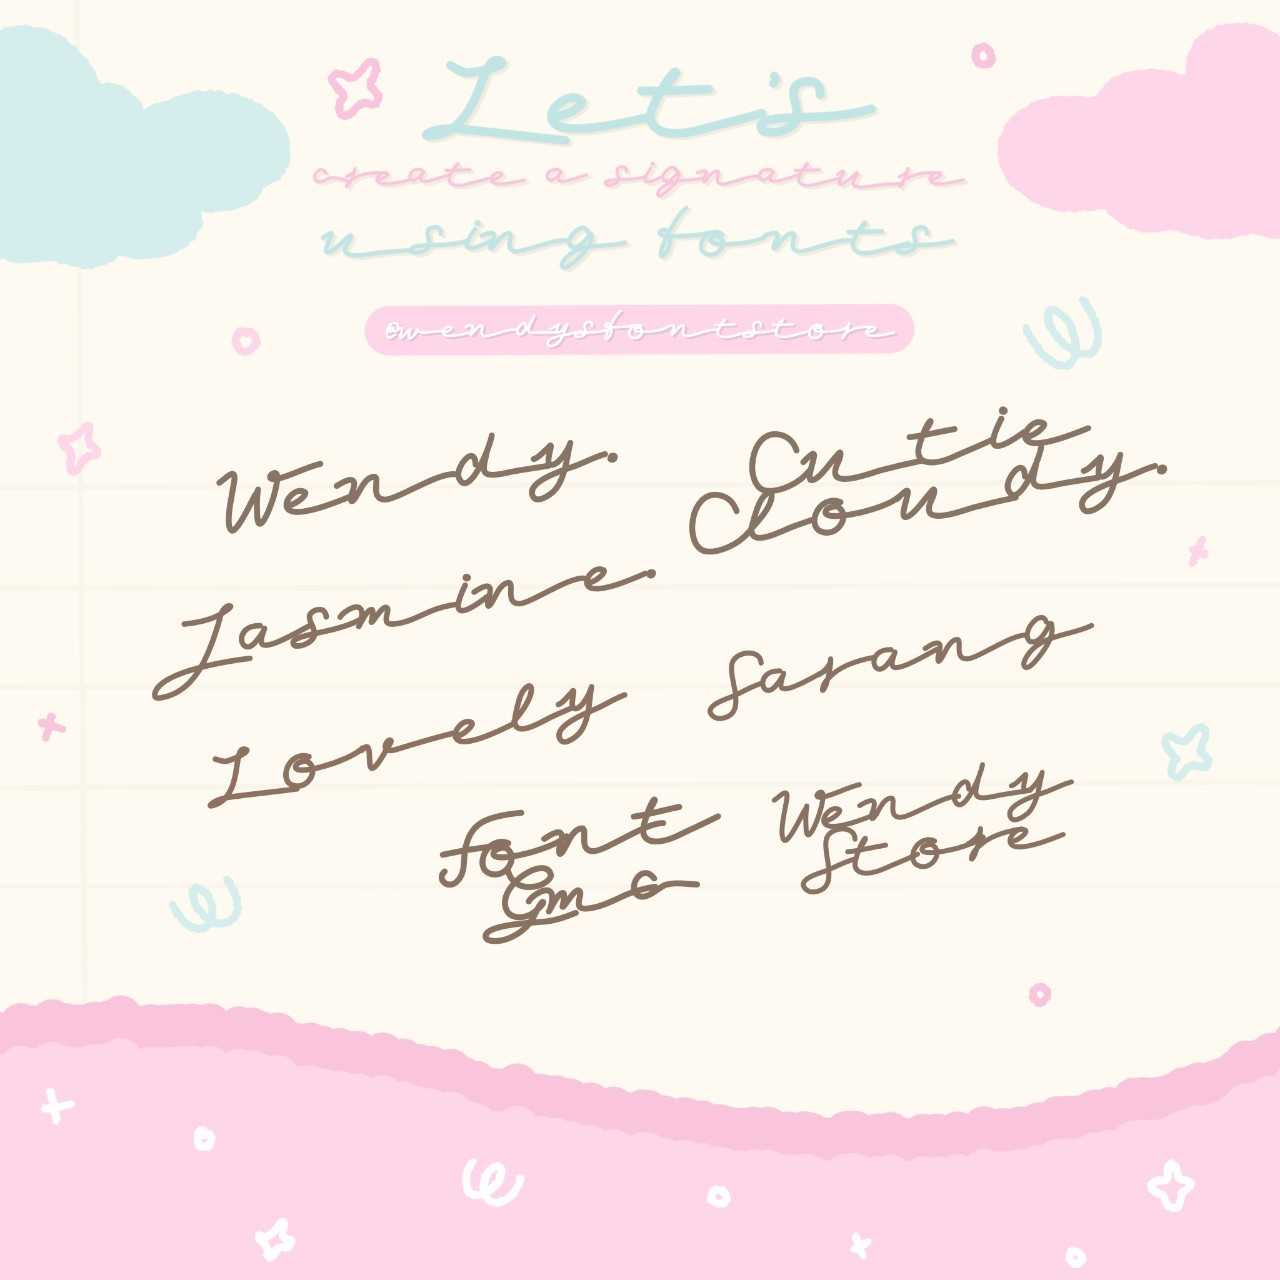 Let's
create a signature
using fonts
@wendysfontstore
Wendy.
Cutie
Cloudy.
Jasmine.
Lovely
Sarang
font
Gmc
Wendy
Store